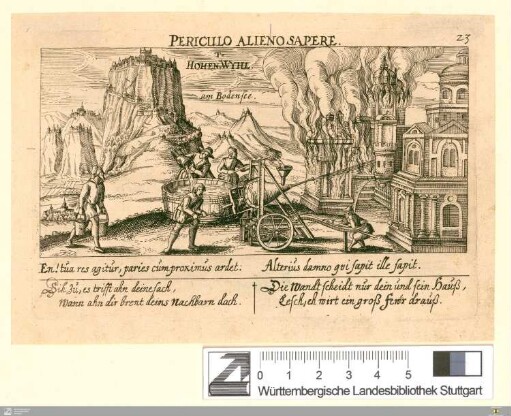 PERICULO ALIENO SAPERE.
23
HOHEN. WYHL
am Bodensee.
En! tua res agitur, paries cum proximus ardet:
Alterius damno qvi sapit ille sapit.
Sih zu, es trifft ahn deine sach,
Wann ahn dir brent deins Nachbarn dach.
Die Wandt scheidt nur dein und sein Hauß,
Lesch, eh wirt ein groß fewr drauß.
0 1 2 3 4 5
Württembergische Landesbibliothek Stuttgart